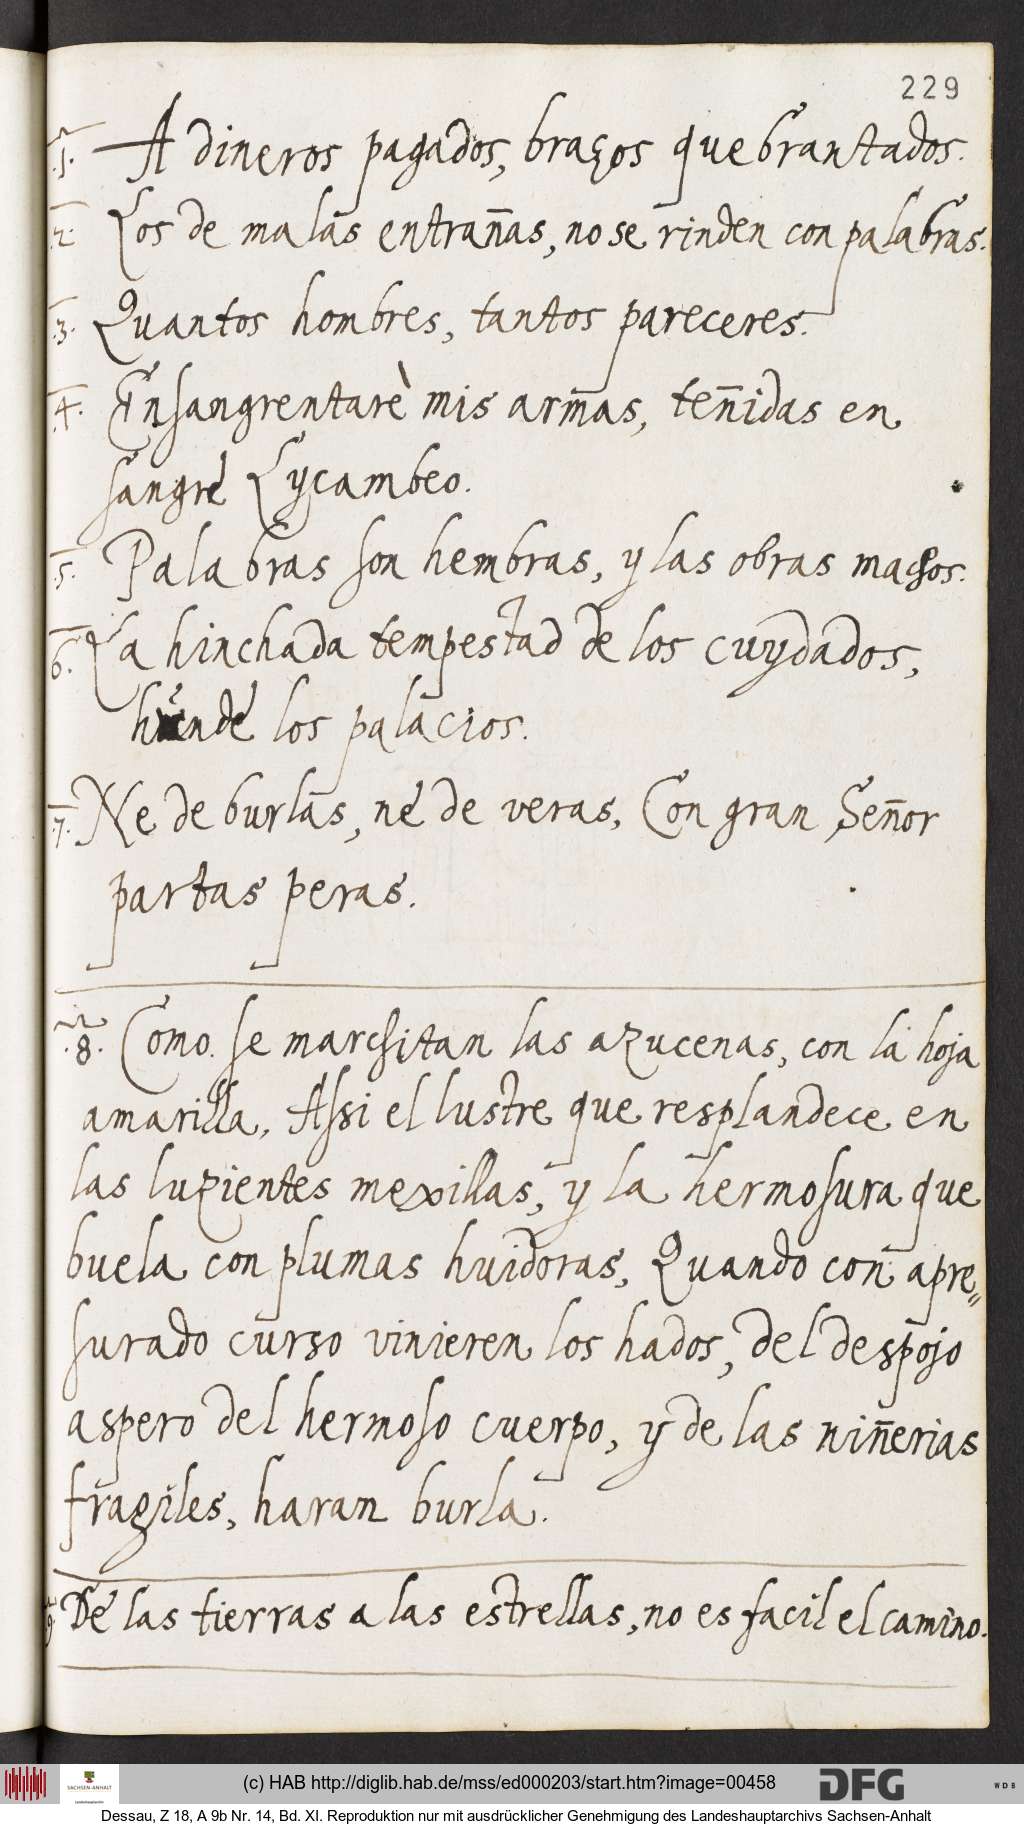 229
.1. A dineros pagados, braços quebrantados.
.2. Los de malas entrañas, no se rinden con palabras.
.3. Quantos hombres, tantos pareceres.
.4. Ensangrentarè mis armas, teñidas en
sangre Lycambeo.
.5. Palabras son hembras, y las obras machos.
6. La hinchada tempestad de los cuydados,
hiende los palacios.
.7. Ne de burlas, ne de veras, Con gran Señor
partas peras.
.8. Como se marchitan las azucenas, con la hoja
amarilla, Assi el lustre que resplandece en
las luzientes mexillas, y la hermosura que
buela con plumas huidoras, Quando con apre„
surado curso vinieren los hados, del despojo
aspero del hermoso cuerpo, y de las niñerias
fragiles, haran burla.
9. De las tierras a las estrellas, no es facil el camino.
SACHSEN-ANHALT
(c) HAB http://diglib.hab.de/mss/ed000203/start.htm?image=00458
DFG
WDB
Dessau, Z 18, A 9b Nr. 14, Bd. XI. Reproduktion nur mit ausdrücklicher Genehmigung des Landeshauptarchivs Sachsen-Anhalt